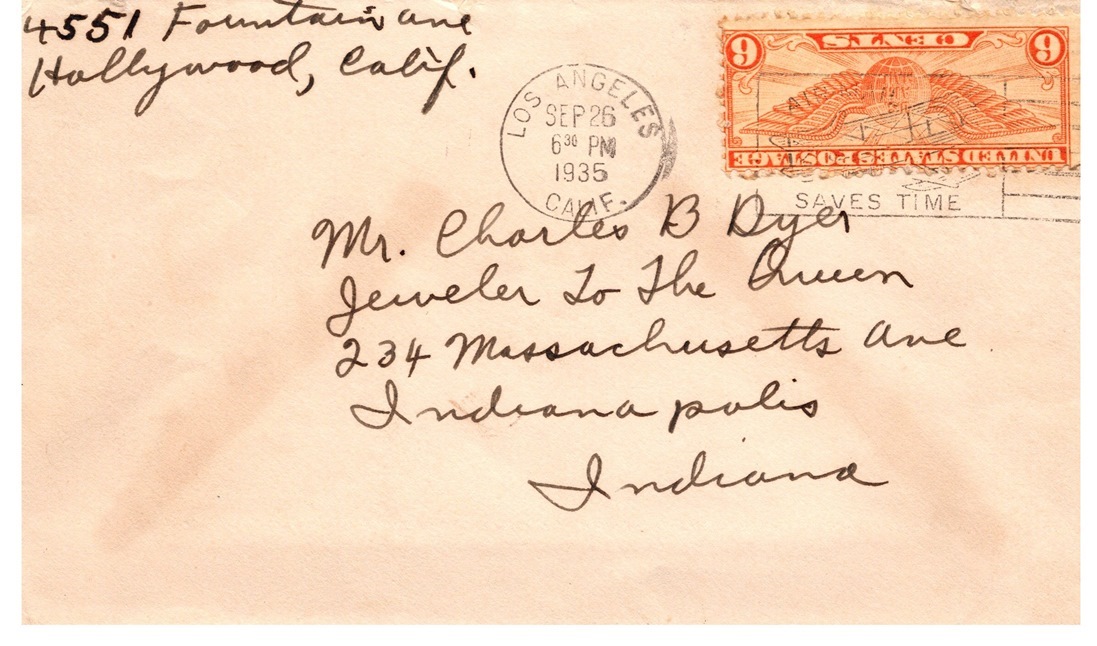 4551 Fountain ave
Hollywood, Calif.
LOS ANGELES
SEP 26
6 30 PM
1935
CALIF.
UNITED STATES POSTAGE
6 CENTS 6
SAVES TIME
Mr. Charles B Dyer
Jeweler To The Queen
234 Massachusetts Ave
Indianapolis
Indiana